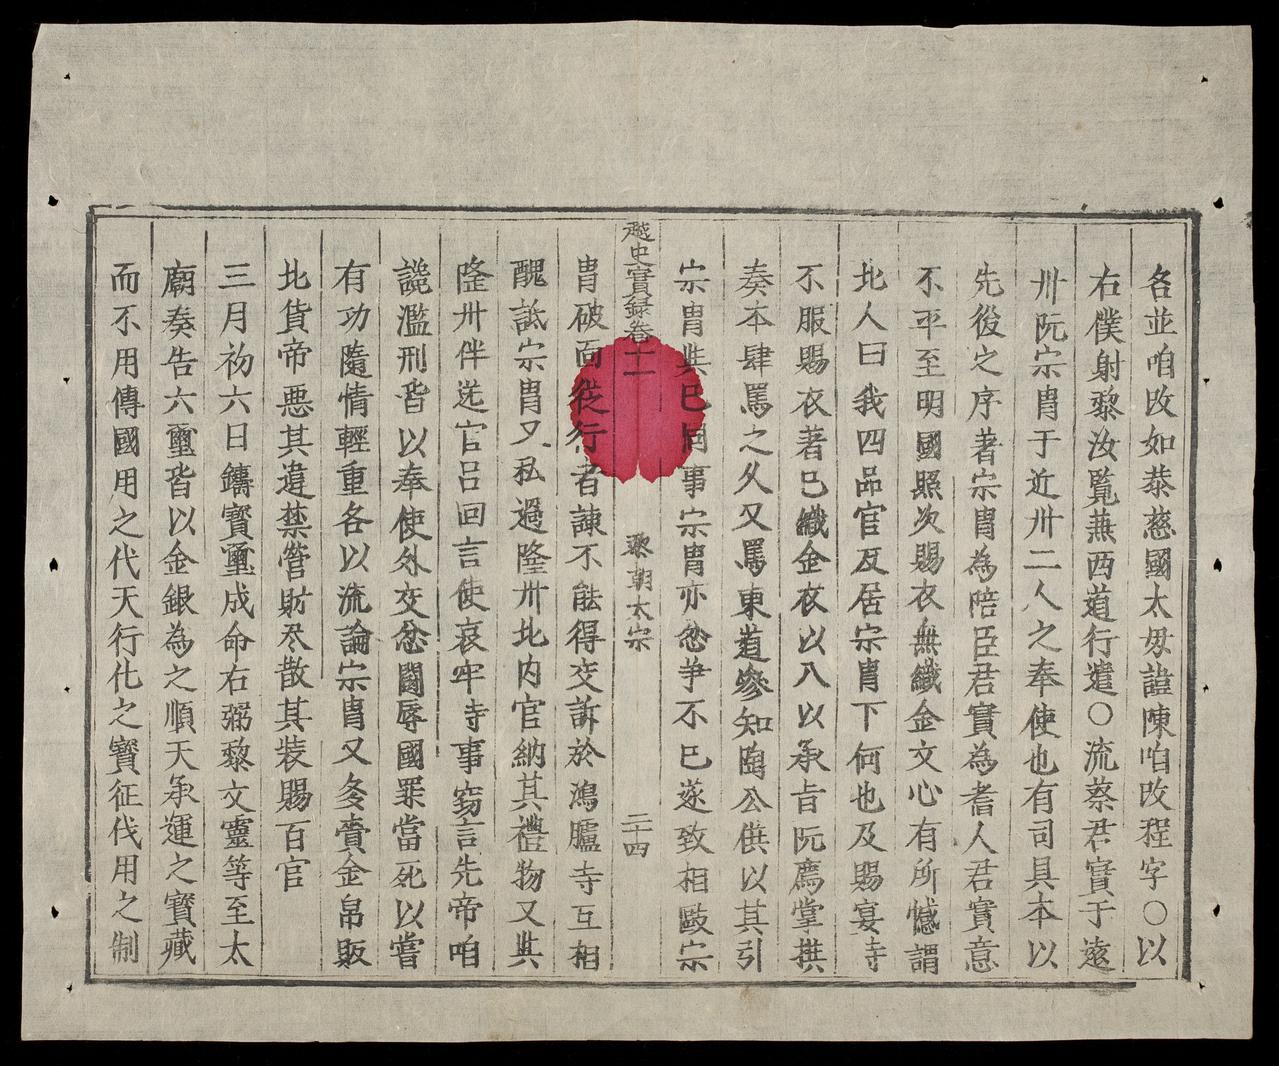 各並咱改如恭慈國太毋諱陳咱改程字○以
右僕射黎汝覧蕪西道行遣○流蔡君實于遠
卅阮宗冑于近卅二人之奉使也有司具本以
先後之序著宗冑為陪臣君實為耆人君實意
不平至明國照次賜衣無織金文心有所憾謂
北人曰我四品官反居宗冑下何也及賜宴寺
不服賜衣著已織金衣以入以承旨阮廌掌撰
奏本肆罵之久又罵東道參知陶公供以其引
宗冑與已同事宗冑亦忿爭不已遂致相毆宗
越史實録卷十一
黎朝太宗
二十四
冑破面從行者諫不能得交訴於鴻臚寺互相
醜詆宗冑又私過隆卅北内官納其禮物又與
隆卅伴送官吕回言使哀牢寺事竊言先帝咱
説濫刑皆以奉使外交忿鬪辱國罪當死以嘗
有功隨情輕重各以流論宗冑又多賫金帛販
北貨帝悪其違禁管財尽散其装賜百官
三月初六日鑄寳璽成命右弼黎文靈等至太
廟奏告六璽皆以金銀為之順天承運之寳藏
而不用傳國用之代天行化之寳征伐用之制